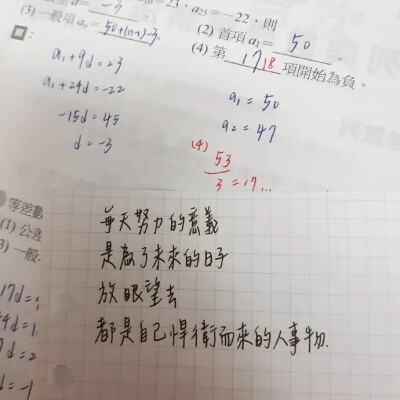 =23，a₂₅=−22，則
-3
(3) 一般項aₙ= 50+(n-1)-3。
(2) 首項a₁= 50 。
(4) 第 17 18 項開始為負。
a₁+9d=23
a₁+24d=-22
-15d=45
d=-3
a₁=50
a₂=47
(4)
53
3 =17...
等差數
(1) 公差
3) 一般
17d=
4d=1
7d=2
d=-1
每天努力的意義
是為了未來的日子
放眼望去
都是自己悍衛而來的人事物.